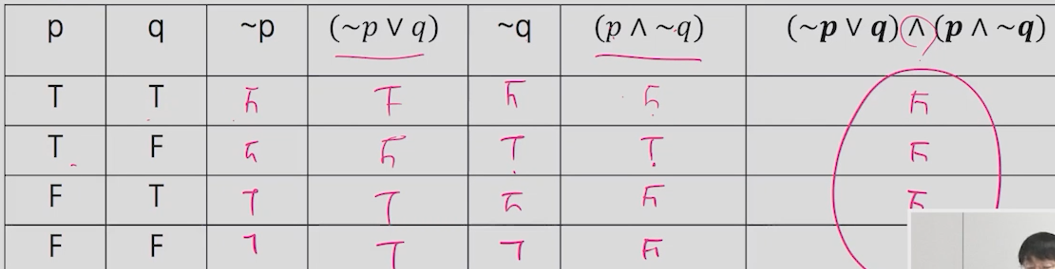 p q ~p (~p ∨ q) ~q (p ∧ ~q) (~p ∨ q) ∧ (p ∧ ~q)
T T F T F F F
T F F F T T F
F T T T F F F
F F T T T F